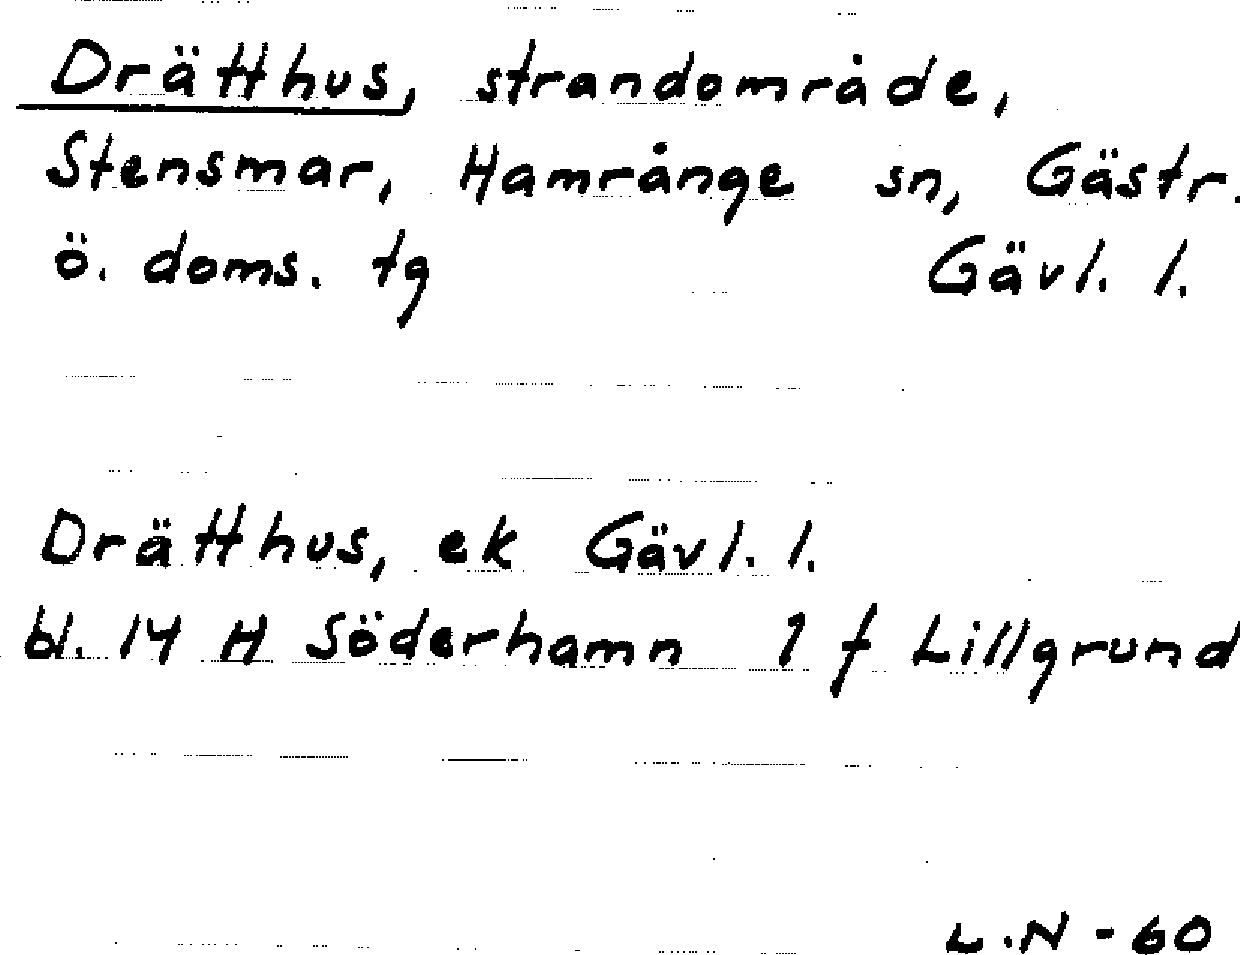 Drätthus, strandområde,
Stensmar, Hamrånge sn, Gästr.
ö. doms. tg Gävl. l.
Drätthus, ek Gävl. l.
bl. 14 H Söderhamn 1 f Lillgrund
L.N - 60